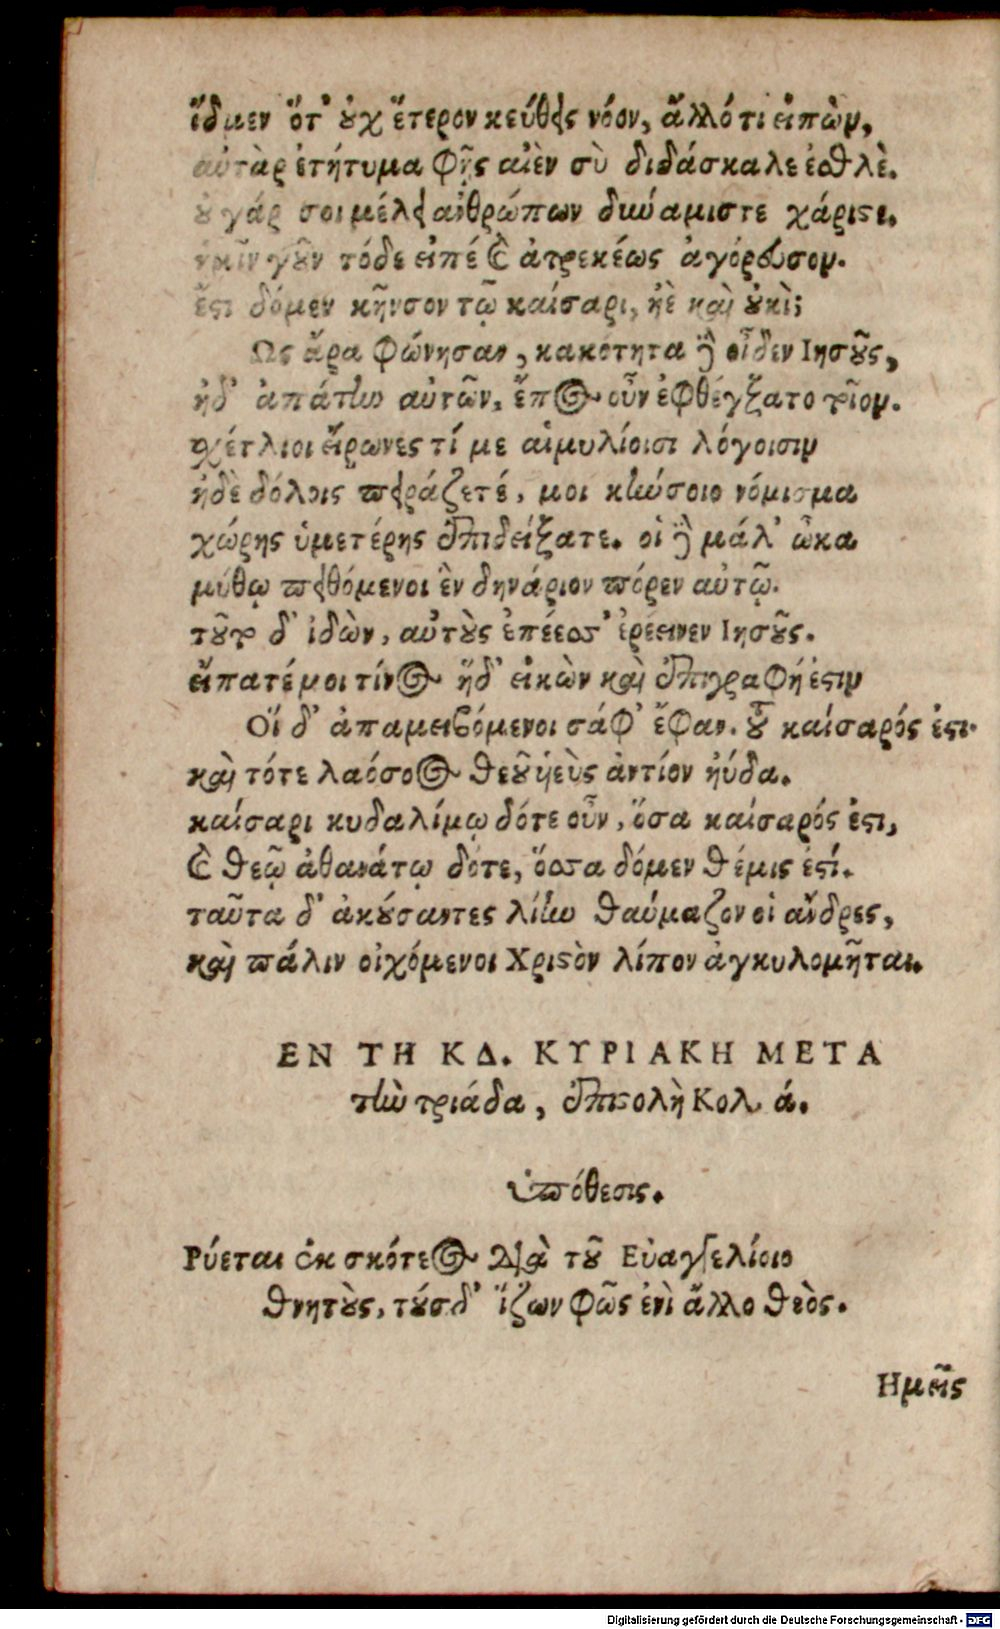 ἴδμεν ὅτ' οὐχ ἕτερον κεύθεις νόον, ἄλλό τι εἰπὼν,
αὐτὰρ ἐτήτυμα φῂς αἰὲν σὺ διδάσκαλε ἐσθλὲ.
οὐ γάρ σοι μέλει ἀνθρώπων δυνάμις τε χάρις τε.
ἡμῖν γοῦν τόδε εἰπέ καὶ ἀτρεκέως ἀγόρευσον.
ἔστι δόμεν κῆνσον τῷ καίσαρι, ἠὲ καὶ οὐκὶ;
Ως ἄρα φώνησαν, κακότητα δὲ οἶδεν Ιησοῦς,
ἠδ' ἀπάτην αὐτῶν, ἔπος οὖν ἐφθέγξατο τοῖον.
σχέτλιοι εἴρωνες τί με αἱμυλίοισι λόγοισιν
ἠδὲ δόλοις πειράζετέ, μοι κήνσοιο νόμισμα
χώρης ὑμετέρης ἐπιδείξατε. οἱ δὲ μάλ' ὦκα
μύθῳ πειθόμενοι ἓν δηνάριον πόρεν αὐτῷ.
τοῦτο δ' ἰδὼν, αὐτοὺς ἐπέεσσ' ἐρέεινεν Ιησοῦς.
εἴπατέ μοι τίνος ἥδ' εἰκὼν καὶ ἐπιγραφή ἐστιν
Οἵ δ' ἀπαμειβόμενοι σάφ' ἔφαν. τοῦ καίσαρός ἐστι.
καὶ τότε λαόσσος θεοῦ υἱεὺς ἀντίον ηὔδα.
καίσαρι κυδαλίμῳ δότε οὖν, ὅσα καίσαρός ἐστι,
καὶ θεῷ ἀθανάτῳ δότε, ὅσσα δόμεν θέμις ἐστί.
ταῦτα δ' ἀκούσαντες λίην θαύμαζον οἱ ἄνδρες,
καὶ πάλιν οἰχόμενοι Χριστὸν λίπον ἀγκυλομῆται.
ΕΝ ΤΗ ΚΔ. ΚΥΡΙΑΚΗ ΜΕΤΑ
τὴν τριάδα, ἐπιστολὴ Κολ. ά.
ὑπόθεσις.
Ρύεται ἐκ σκότεος διὰ τοῦ Εὐαγγελίοιο
θνητοὺς, τούσδ' ἵζων φῶς ἐνὶ ἄλλο θεὸς.
Ημεῖς
Digitalisierung gefördert durch die Deutsche Forschungsgemeinschaft - DFG